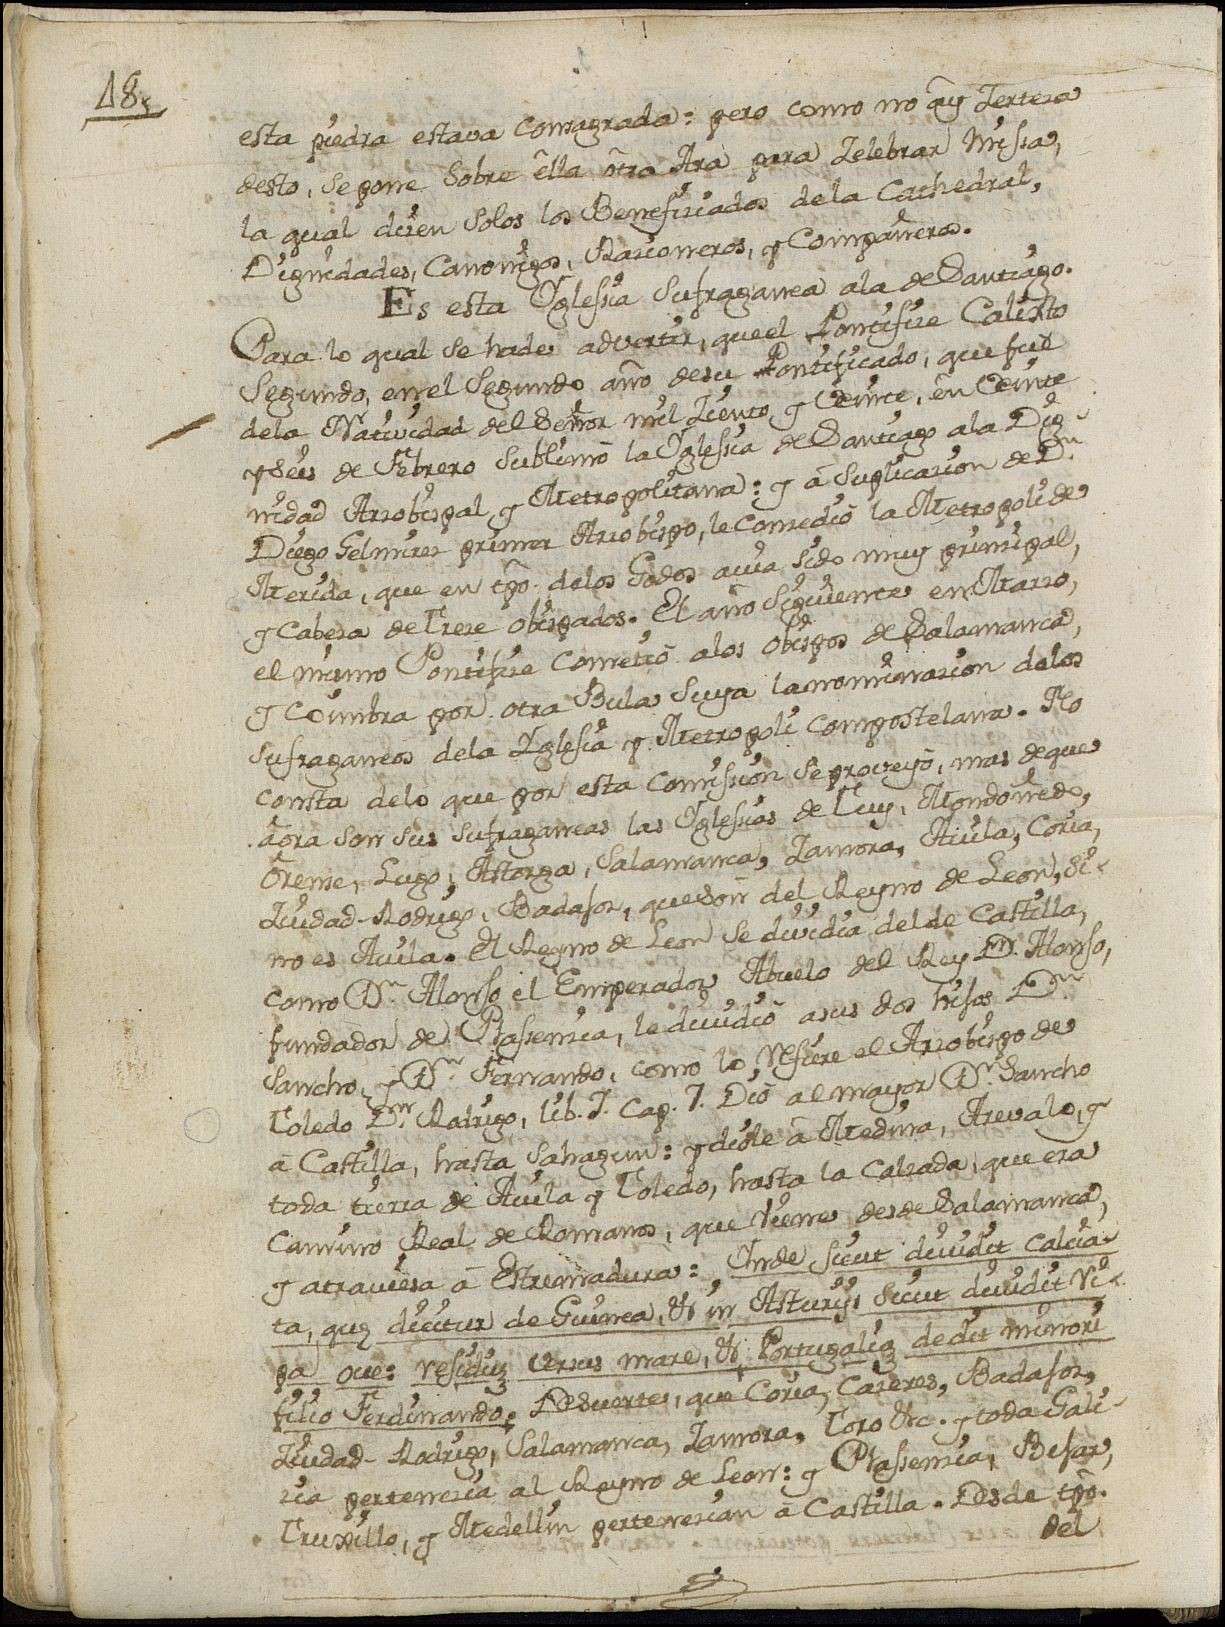 18,
esta piedra estava consagrada: pero como no ay Zerteza
desto, se pone sobre ella otra Ara para Zelebrar Missa,
la qual dizen solos los Beneficiados dela Cathedral,
Dignidades, Canonigos, Razioneros, y Compañeros.
Es esta Yglesia sufraganea ala de Santiago.
Para lo qual se ha de advertir, que el Pontifize Calixto
Segundo, en el Segundo año de su Pontificado, que fue
dela Natividad del Señor mil Ziento y Veinte, en Veinte
y seis de Febrero sublimó la Yglesia de Santiago ala Dig-
nidad Arzobispal y Metropolitana: y á suplicazion de Dn.
Diego Gelmirez primer Arzobispo, le conzedió la Metropoli de
Merida, que en tpõ. delos Godos avia sido muy prinzipal,
y Cabeza de Treze obispados. El año siguiente en Marzo,
el mismo Pontifize cometió alos obispos de Salamanca,
y Coimbra por otra Bula suya la nominazion delos
sufraganeos dela Yglesia y Metropoli compostelana. No
consta delo que por esta comission se proveyó, mas de que
aora son sus sufraganeas las Yglesias de Tuy, Mondoñedo,
Orense, Lugo, Astorga, Salamanca, Zamora, Avila, Coria,
Ziudad-Rodrigo, Badajoz, que son del Reyno de Leon, si-
no es Avila. El Reyno de Leon se dividia del de Castilla,
como Dn. Alonso el Emperador Abuelo del Rey Dn. Alonso,
fundador de Plassenzia, le dividió a sus dos hijos Dn.
Sancho, y Dn. Fernando, como lo refiere el Arzobispo de
Toledo Dn. Rodrigo, lib. 7. Cap. 7. Dió al mayor Dn. Sancho
á Castilla, hasta Sahagun: y diole á Medina, Arevalo, y
toda tierra de Avila y Toledo, hasta la Calzada, que era
Camino Real de Romanos, que viene desde Salamanca,
y atraviesa á Estremadura: Unde sicut dividit calcia-
ta, quę dicitur de Guinea, & in Asturijs sicut dividit Vi-
pa Ove: residuę versus mare, & Portugalię dedit minori
filio Ferdinando. De suerte, que Coria, Cazeres, Badajoz,
Ziudad-Rodrigo, Salamanca, Zamora, Toro &c. y toda Gali-
zia pertenezia al Reyno de Leon: y Plassenzia, Bejar,
Truxillo, y Medellin pertenezian á Castilla. Desde tpõ.
del